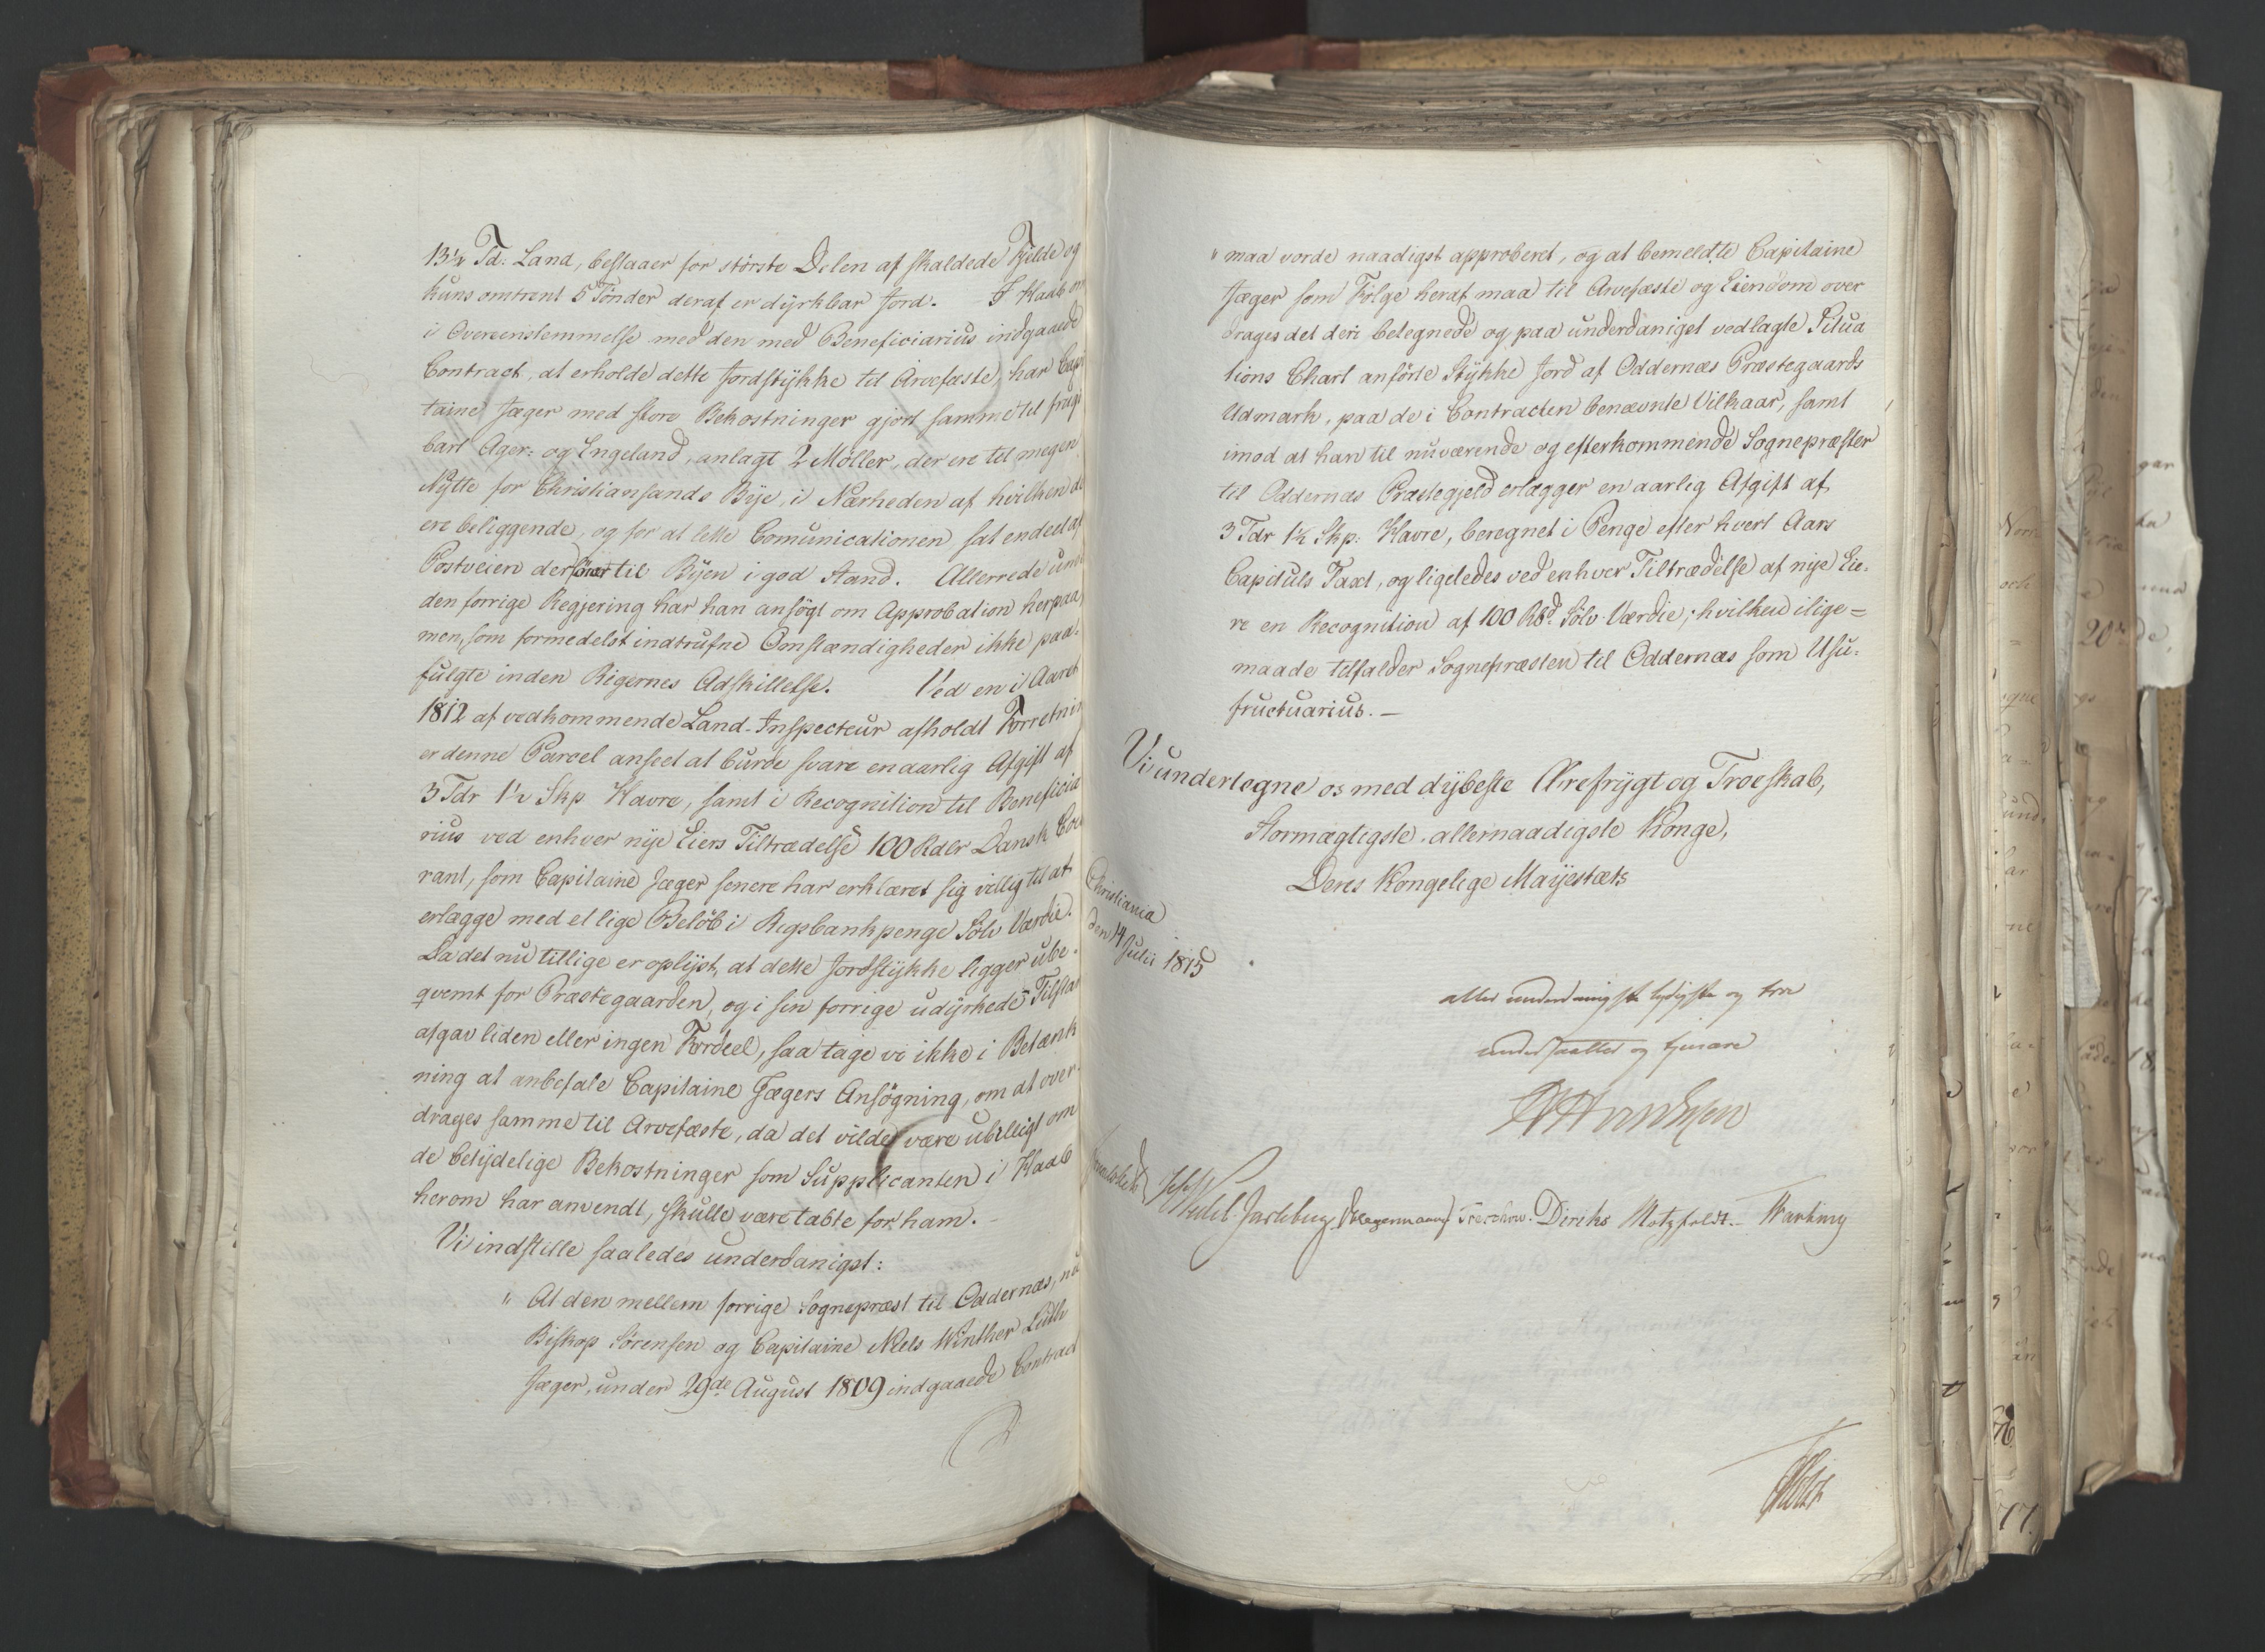 13½ Td: Land, bestaaer for störste Delen af skaldede Fjelde og
kuns omtrent 5 Tönder deraf er dyrkbar Jord. I Haab om
i Overeenstemmelse med den med Beneficiarius indgaaede
Contract, at erholde dette Jordstykke til Arvefæste, har Capi
taine Jæger med store Bekostninger gjort samme til frugt
bart Ager- og Engeland, anlagt 2 Möller, der ere til megen
Nytte for Christiansands Bye, i Nærheden af hvilken de
ere beliggende, og for at lette Comunicationen sat endeel af
Postveien der förer til Byen i god Stand. Allerrede un
den forrige Regjering har han ansögt om Approbation herpaa
men, som formedelst indtrufne Omstændigheder ikke paa-
fulgte inden Rigernes Adskillelse. Ved en i Aaret
1812 af vedkommende Land-Inspecteur afholdt Forretnin
er denne Parcel anseet at burde svare en aarlig Afgift af
3 Tdr 1½ Skp Havre, samt i Recognition til Beneficia
rius ved enhver nye Eiers Tiltrædelse 100 Rdlr Dansk Cou
rant, som Capitaine Jæger senere har erklæret sig villig til at
erlægge med et lige Belöb i Rigsbankpenge Sölv Værdie.
Da det nu tillige er oplyst, at dette Jordstykke ligger ube-
qvemt for Præstegaarden, og i sin forrige udyrkede Tilstan
afgav liden eller ingen Fordeel, saa tage vi ikke i Betænk
ning at anbefale Capitaine Jægers Ansögning, om at over-
drages samme til Arvefæste, da det vilde være ubilligt om
de betydelige Bekostninger som Supplicanten i Haab
herom har anvendt, skulle være tabte for ham. –
Vi indstille saaledes underdanigst:
" At den mellem forrige Sognepræst til Oddernæs, nu
Biskop Sörensen og Capitaine Niels Winther Luth
Jæger, under 29de August 1809 indgaaede Contract
" maa vorde naadigst approberet, og at bemeldte Capitaine
Jæger som Fölge heraf maa til Arvefæste og Eiendom over
drages det deri betegnede og paa underdanigst vedlagte Situa
tions Chart anförte Stykke Jord af Oddernæs Præstegaards
Udmark, paa de i Contracten benævnte Vilkaar, samt
imod at han til nuværende og efterkommende Sognepræster
til Oddernæs Præstegjeld erlægger en aarlig Afgift af
3 Tdr 1½ Skp: Havre, beregnet i Penge efter hvert Aars
Capituls Taxt, og ligeledes ved enhver Tiltrædelse af nye Eie-
re en Recognition af 100 Rbd. Sölv Værdie; hvilken ilige=
maade tilfalder Sognepræsten til Oddernæs som Usu-
fructuarius. –
Vi undertegne os med dybeste Ærefrygt og Troeskab,
Stormægtigste, allernaadigste Konge,
Deres Kongelige Mayestæts
Christiania
den 14 Julii 1815
allerunderdanigste lydigste og troe
undersaatter og tjenere
Wedel Jarlsberg Hegermann Treschow. Diriks Motzfeldt. –